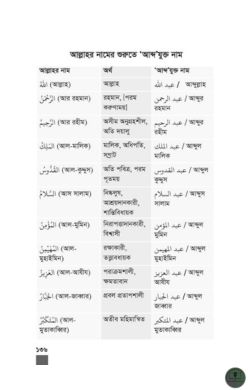 আল্লাহর নামের শুরুতে 'আব্দ'যুক্ত নাম
আল্লাহর নাম অর্থ 'আব্দ'যুক্ত নাম
اللهُ (আল্লাহ) আল্লাহ عبد الله / আব্দুল্লাহ
الرَّحْمٰنُ (আর রহমান) রহমান, [পরম عبد الرحمن / আব্দুর
করুণাময়] রহমান
الرَّحِيمُ (আর রহীম) অসীম অনুগ্রহশীল, عبد الرحيم / আব্দুর
অতি দয়ালু রহীম
المَلِكُ (আল-মালিক) মালিক, অধিপতি, عبد الملك / আব্দুল
সম্রাট মালিক
القُدُّوسُ (আল-কুদ্দুস) অতি পবিত্র, পরম عبد القدوس / আব্দুল
পূতময় কুদ্দুস
السَّلَامُ (আস সালাম) নিষ্কলুষ, عبد السلام / আব্দুস
আশ্রয়দানকারী, সালাম
শান্তিবিধায়ক
المُؤْمِنُ (আল-মুমিন) নিরাপত্তাদানকারী, عبد المؤمن / আব্দুল
বিশ্বাসী মুমিন
المُهَيْمِنُ (আল- রক্ষাকারী, عبد المهيمن / আব্দুল
মুহাইমিন) তত্ত্বাবধায়ক মুহাইমিন
العَزِيزُ (আল-আযীয) পরাক্রমশালী, عبد العزيز / আব্দুল
ক্ষমতাবান আযীয
الجَبَّارُ (আল-জাব্বার) প্রবল প্রতাপশালী عبد الجبار / আব্দুল
জাব্বার
المُتَكَبِّرُ (আল- অতীব মহিমান্বিত عبد المتكبر / আব্দুল
মুতাকাব্বির) মুতাকাব্বির
১৩৬